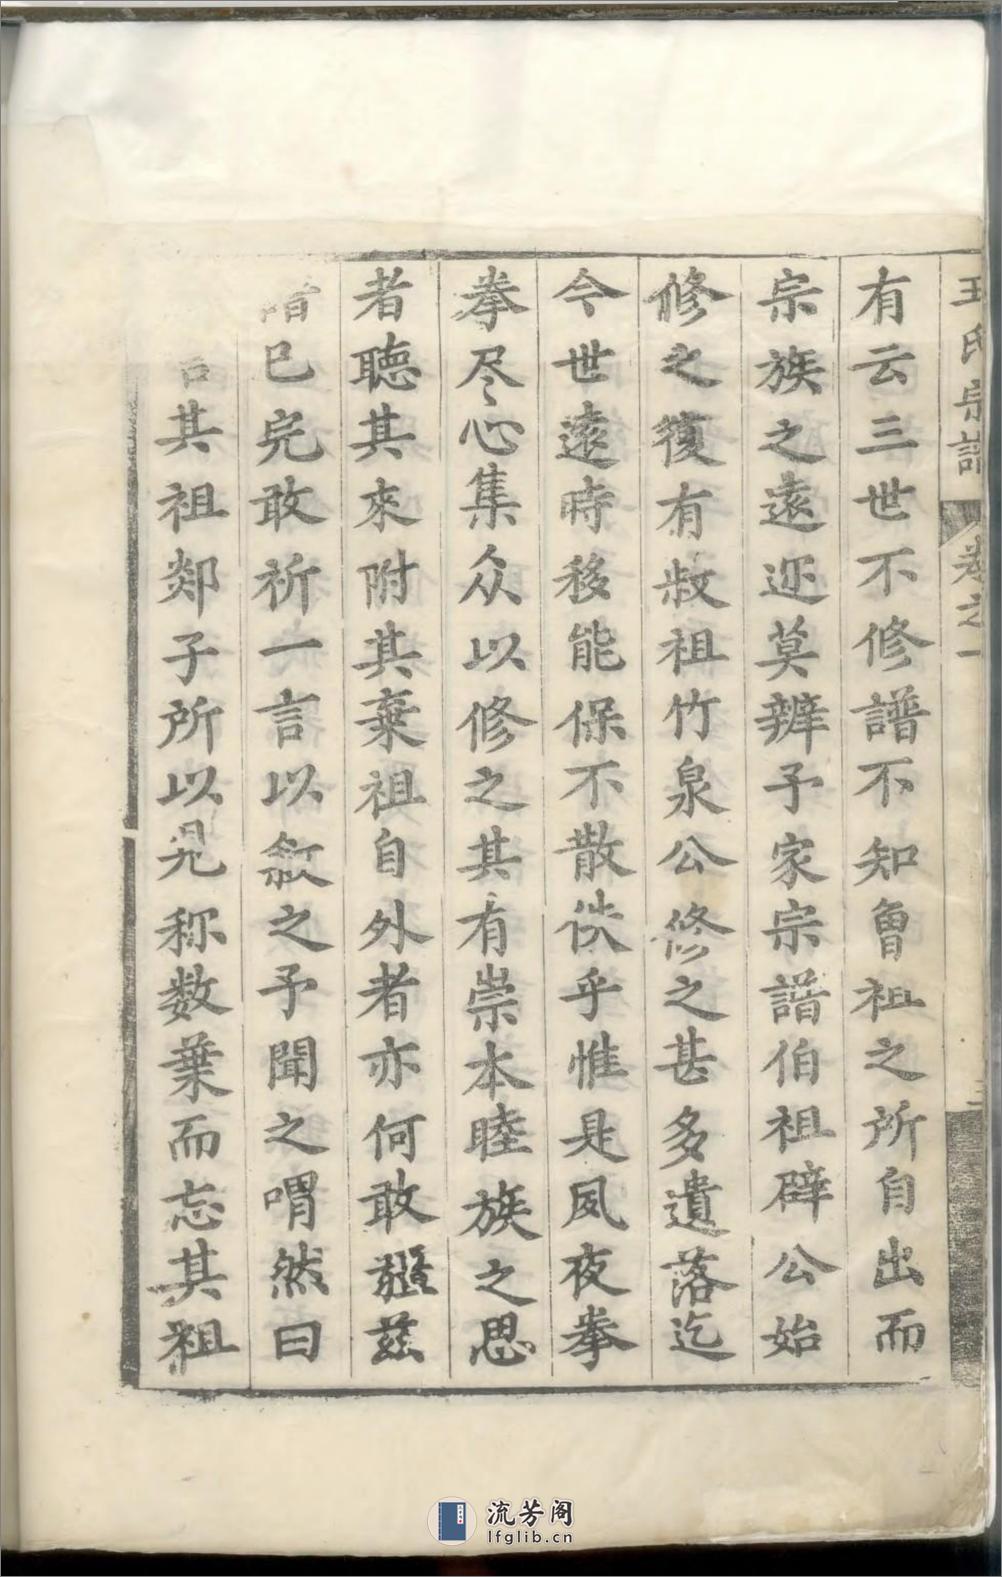 王氏宗譜 卷之一
有云三世不修譜不知曾祖之所自出而
宗族之遠迩莫辨予家宗譜伯祖辟公始
修之復有叔祖竹泉公修之甚多遺落迄
今世遠時移能保不散佚乎惟是夙夜拳
拳尽心集众以修之其有崇本睦族之思
者聽其來附其棄祖自外者亦何敢強兹
譜已完敢祈一言以敘之予聞之喟然曰
其祖郯子所以見称数葉而忘其祖
流芳阁
lfglib.cn